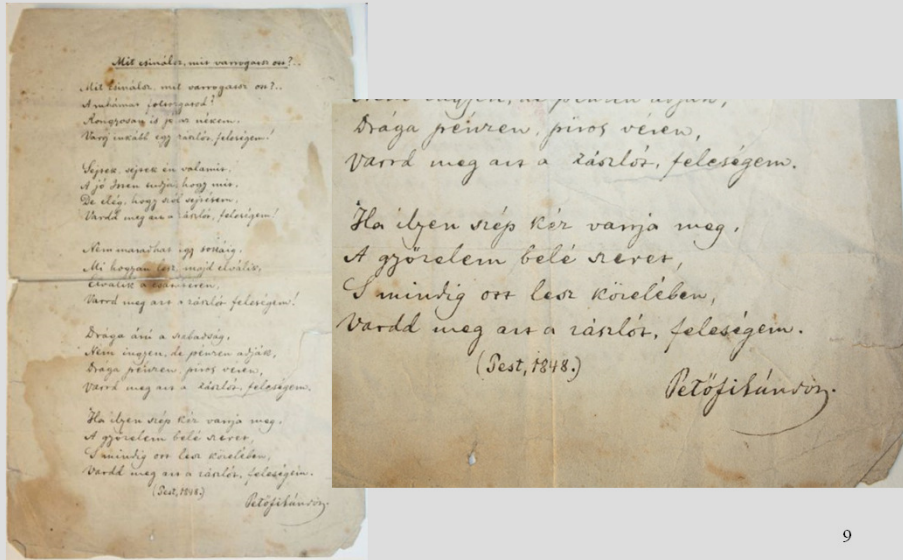 Mit csinálsz, mit varrogatsz ott?..
Mit csinálsz, mit varrogatsz ott?..
A ruhámat foltozgatod?
Rongyosan is jó az nékem,
Varrj inkább egy zászlót, feleségem!
Sejtek, sejtek én valamit,
A jó Isten tudja, hogy mit,
De elég, hogy szól sejtésem,
Vardd meg azt a zászlót, feleségem!
Nem maradhat igy sokáig,
Mi hogyan lesz, majd elválik,
Elválik a
Varrd meg azt a zászlót feleségem!
Drága árú a szabadság,
Nem ingyen, de pénzen adják,
Drága pénzen, piros véren,
Varrd meg azt a zászlót, feleségem.
Ha ilyen szép kéz varrja meg,
A győzelem belé szeret,
S mindig ott lesz közelében,
Vardd meg azt a zászlót, feleségem.
(Pest, 1848.)
Petőfi Sándor.
Nem ingyen, de pénzen adják,
Drága pénzen, piros véren,
Varrd meg azt a zászlót, feleségem.
Ha ilyen szép kéz varrja meg,
A győzelem belé szeret,
S mindig ott lesz közelében,
Vardd meg azt a zászlót, feleségem.
(Pest, 1848.)
Petőfi Sándor.
9